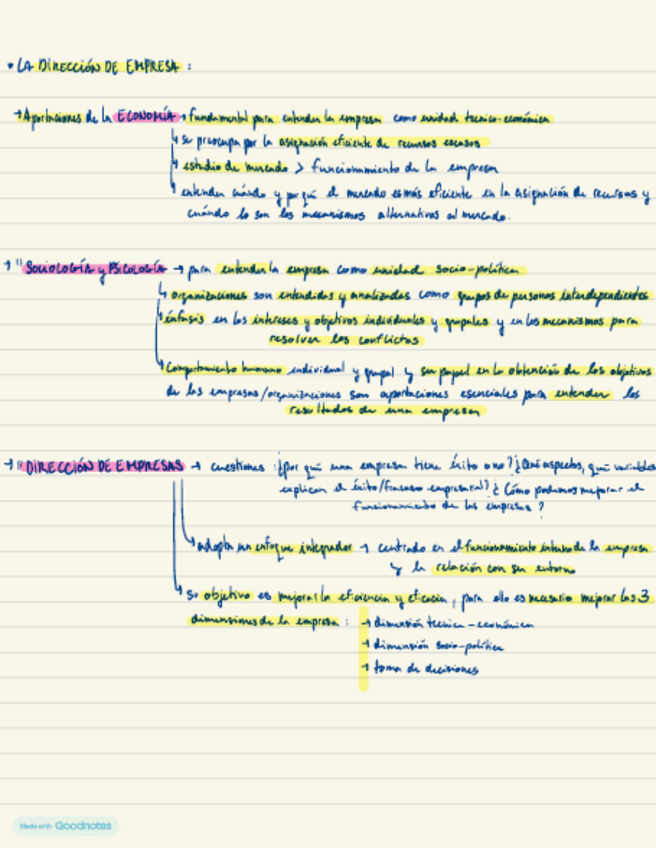 • LA DIRECCIÓN DE EMPRESA :
→ Aportaciones de la ECONOMÍA → fundamental para entender la empresa como unidad técnico-económica
↳ se preocupa por la asignación eficiente de recursos escasos
↳ estudio de mercado > funcionamiento de la empresa
↳ entender cuándo y por qué el mercado es más eficiente en la asignación de recursos y
cuándo lo son los mecanismos alternativos al mercado.
→ " SOCIOLOGÍA y PSICOLOGÍA → para entender la empresa como unidad socio-política
↳ organizaciones son entendidas y analizadas como grupos de personas interdependientes
↳ énfasis en los intereses y objetivos individuales y grupales y en los mecanismos para
resolver los conflictos
↳ Comportamiento humano individual y grupal y su papel en la obtención de los objetivos
de las empresas/organizaciones son aportaciones esenciales para entender los
resultados de una empresa
→ " DIRECCIÓN DE EMPRESAS → cuestiones : ¿por qué una empresa tiene éxito o no? ¿Qué aspectos, qué variables
explican el éxito/fracaso empresarial? ¿Cómo podemos mejorar el
funcionamiento de las empresas?
↳ adopta un enfoque integrador → centrado en el funcionamiento interno de la empresa
y la relación con su entorno
↳ Su objetivo es mejorar la eficiencia y eficacia, para ello es necesario mejorar las 3
dimensiones de la empresa : → dimensión técnico-económica
→ dimensión socio-política
→ toma de decisiones
Made with Goodnotes